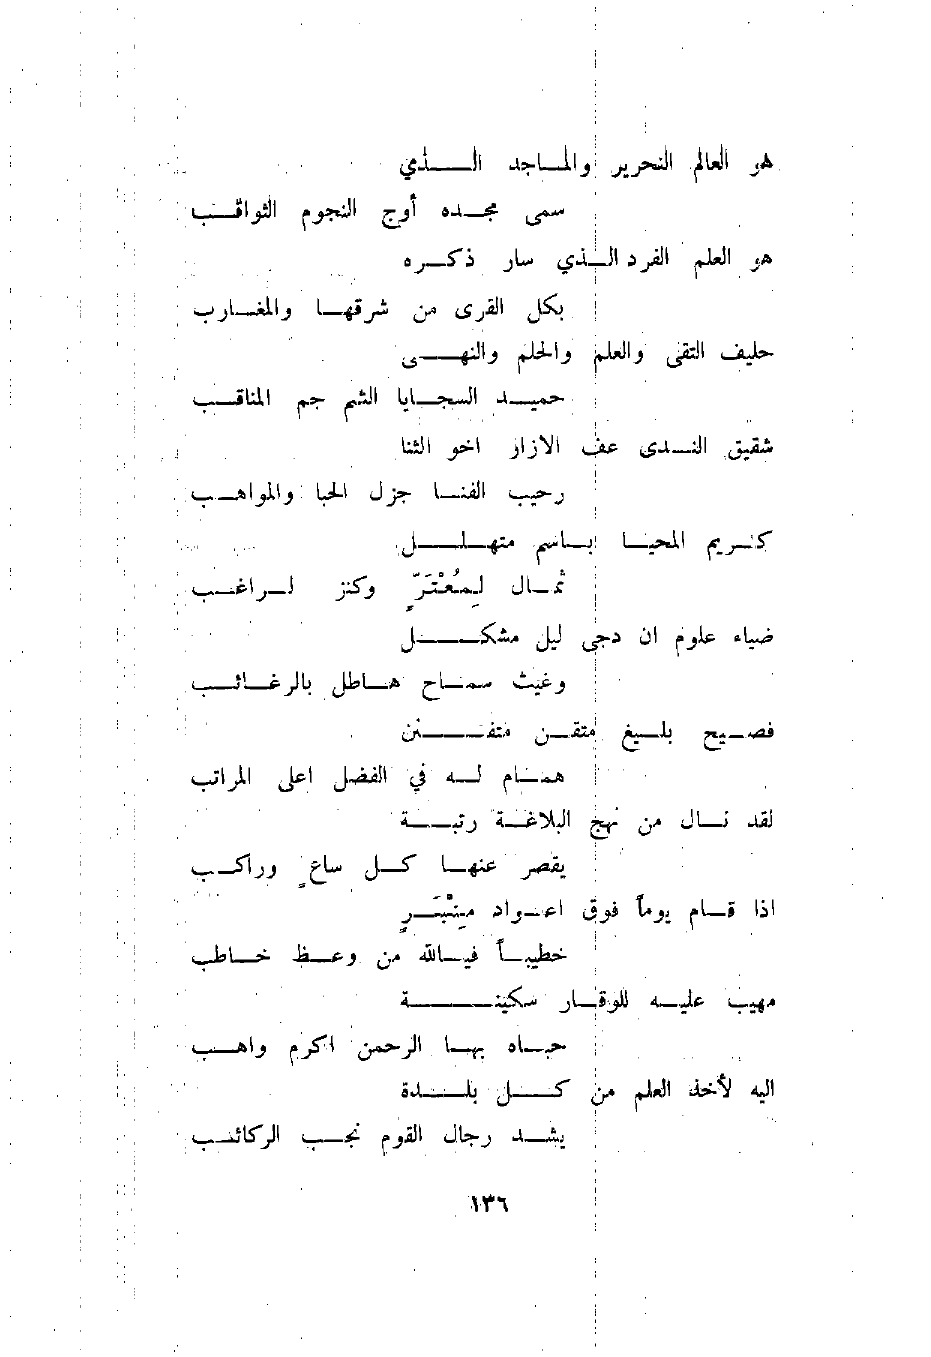 هو العالم النحرير والماجد الذي
سمى مجده أوج النجوم الثواقب
هو العلم الفرد الذي سار ذكره
بكل القرى من شرقها والمغارب
حليف التقى والعلم والحلم والنهى
حميد السجايا الشم جم المناقب
شقيق الندى عف الازار اخو الثنا
رحيب الفنا جزل الحبا والمواهب
كريم المحيا باسم متهلل
ثمال لِمُعْتَرٍّ وكنز لراغب
ضياء علوم ان دجى ليل مشكل
وغيث سماح هاطل بالرغائب
فصيح بليغ متقن متفنن
همام له في الفضل اعلى المراتب
لقد نال من نهج البلاغة رتبة
يقصر عنها كل ساعٍ وراكب
اذا قام يوماً فوق اعواد مِنْبَرٍ
خطيباً فيالله من وعظ خاطب
مهيب عليه للوقار سكينة
حباه بها الرحمن اكرم واهب
اليه لأخذ العلم من كل بلدة
يشد رجال القوم نجب الركائب
١٣٦